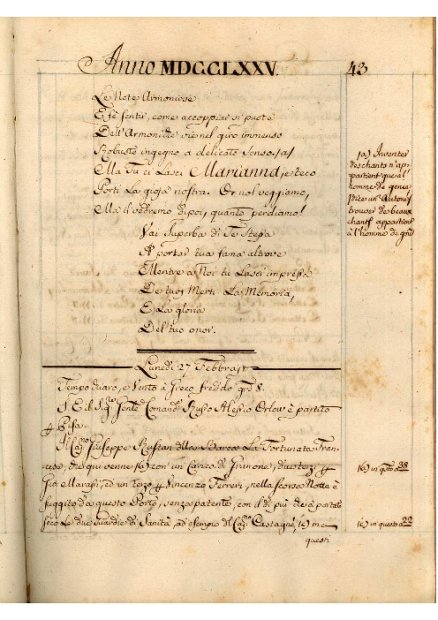 Anno MDCCLXXV. 43
Le Note Armoniose
E fe sentir, come accoppiar si puote
Dell'Armonide nel giro immenso
Robusto ingegno a delicato senso. (a)
Ma Tu ci lasci Marianna, e teco
Porti La gioja nostra. Or noi veggiamo,
Ma il vedremo dipoi, quanto perdiamo!
Vai Superba di Te Stessa
A portar tua fama altrove
Mentre a Noi tu Lasci impressa
De tuoi Merti La Memoria,
E La gloria
Del tuo onor.
(a) Inventer
des chants n'ap-
partient qu'a l'
homme de genie
trouver de beaux
chants appartient
à l'homme de
Lunedì 27 Febbraro
Tempo Vario, e Vento a Greco freddo gr. 8.
S. E. il Sig. Tenente Comand. Russo Alessio Orlow è partito
Pisa.
Giuseppe Rustan della Barca La Fortunata Fran-
cese, che qui venne (b) con un Carico di
Gio. Marassi, ed un terzo Vincenzo Ferreri, nella scorsa Notte è
fuggito da questo Porto, senza patente, con di più d'essersi portato
seco Le due Guardie di Sanità, ad esempio del Cap. Castagne, (c) me-
questi
(b) in q.to a 38
(c) in questo a 22